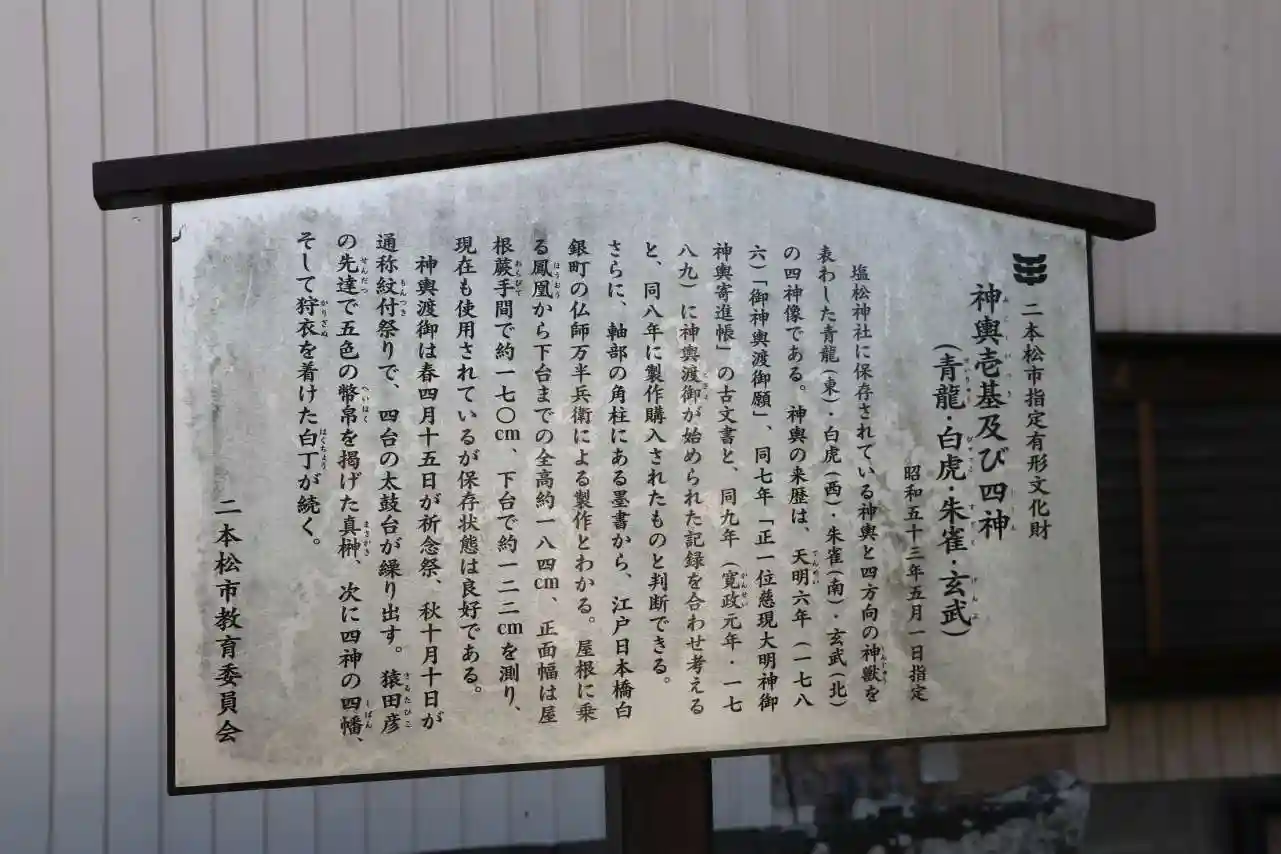 二本松市指定有形文化財
神輿壱基及び四神
（青龍・白虎・朱雀・玄武）
昭和五十三年五月一日指定
塩松神社に保存されている神輿と四方向の神獣を
表わした青龍（東）・白虎（西）・朱雀（南）・玄武（北）
の四神像である。神輿の来歴は、天明六年（一七八
六）「御神輿渡御願」、同七年「正一位慈現大明神御
神輿寄進帳」の古文書と、同九年（寛政元年・一七
八九）に神輿渡御が始められた記録を合わせ考える
と、同八年に製作購入されたものと判断できる。
さらに、軸部の角柱にある墨書から、江戸日本橋白
銀町の仏師万半兵衛による製作とわかる。屋根に乗
る鳳凰から下台までの全高約一八四cm、正面幅は屋
根蕨手間で約一七〇cm、下台で約一二二cmを測り、
現在も使用されているが保存状態は良好である。
神輿渡御は春四月十五日が祈念祭、秋十月十日が
通称紋付祭りで、四台の太鼓台が繰り出す。猿田彦
の先達で五色の幣帛を掲げた真榊、次に四神の四幡、
そして狩衣を着けた白丁が続く。
二本松市教育委員会